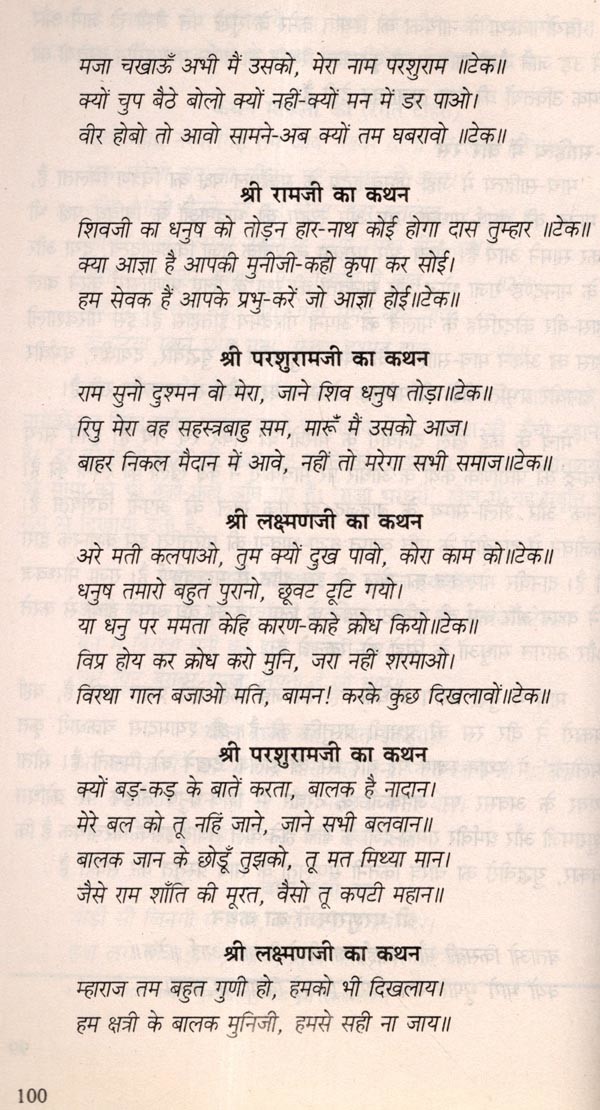 मजा चखाऊँ अभी मैं उसको, मेरा नाम परशुराम ॥टेक॥
क्यों चुप बैठे बोलो क्यों नहीं-क्यों मन में डर पाओ।
वीर होबो तो आवो सामने-अब क्यों तम घबरावो ॥टेक॥
श्री रामजी का कथन
शिवजी का धनुष को तोड़न हार-नाथ कोई होगा दास तुम्हार ॥टेक॥
क्या आज्ञा है आपकी मुनीजी-कहो कृपा कर सोई।
हम सेवक हैं आपके प्रभु-करें जो आज्ञा होई॥टेक॥
श्री परशुरामजी का कथन
राम सुनो दुश्मन वो मेरा, जाने शिव धनुष तोड़ा॥टेक॥
रिपु मेरा वह सहस्त्रबाहु सम, मारूँ मैं उसको आज।
बाहर निकल मैदान में आवे, नहीं तो मरेगा सभी समाज॥टेक॥
श्री लक्ष्मणजी का कथन
अरे मती कलपाओ, तुम क्यों दुख पावो, कोरा काम को॥टेक॥
धनुष तमारो बहुत पुरानो, छूवट टूटि गयो।
या धनु पर ममता केहि कारण-काहे क्रोध कियो॥टेक॥
विप्र होय कर क्रोध करो मुनि, जरा नहीं शरमाओ।
विरथा गाल बजाओ मति, बामन! करके कुछ दिखलावों॥टेक॥
श्री परशुरामजी का कथन
क्यों बड़-कड़ के बातें करता, बालक है नादान।
मेरे बल को तू नहिं जाने, जाने सभी बलवान॥
बालक जान के छोड़ूँ तुझको, तू मत मिथ्या मान।
जैसे राम शाँति की मूरत, वैसो तू कपटी महान॥
श्री लक्ष्मणजी का कथन
म्हाराज तम बहुत गुणी हो, हमको भी दिखलाय।
हम क्षत्री के बालक मुनिजी, हमसे सही ना जाय॥
100